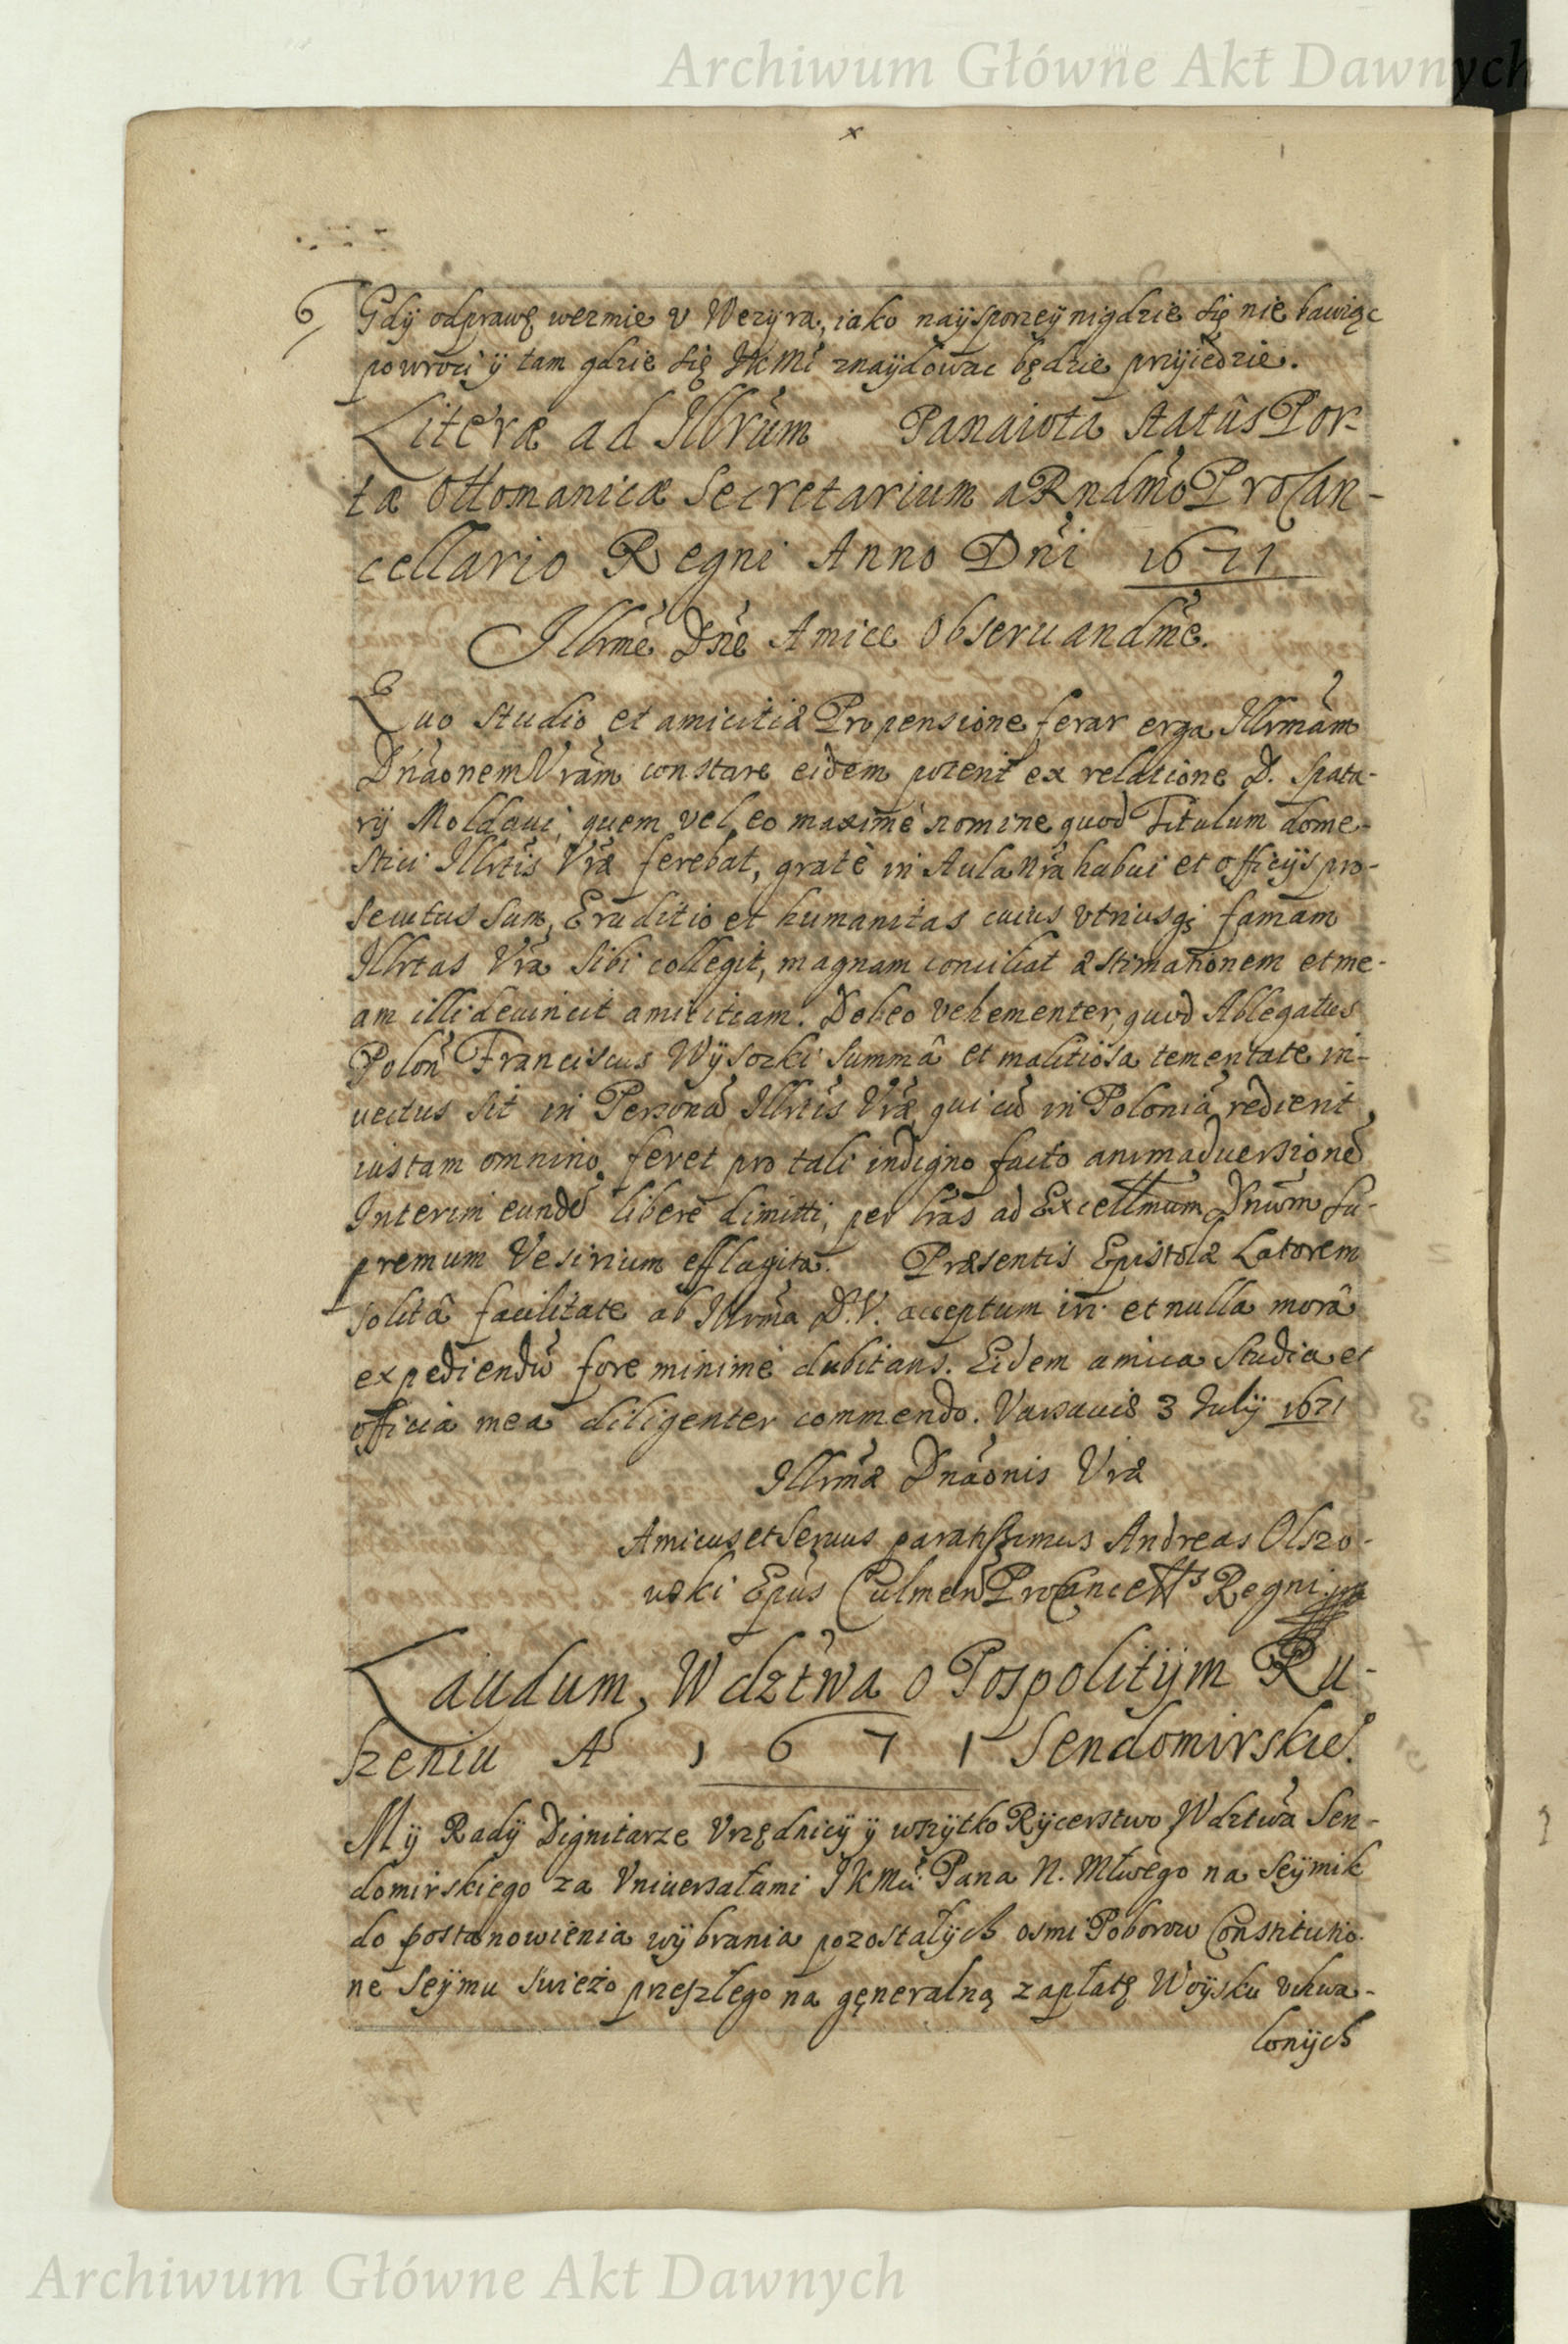 Archiwum Główne Akt Dawnych
6 Gdÿ odprawę wezmie v Wezyra, iako naÿsporzeÿ nigdzie się nie bawiąc
powroci ÿ tam gdzie się JKMć znaÿdowac będzie przyiedzie.
Literæ ad Illrum Panaiota statûs Por-
tæ Ottomanicæ Secretarium a Rndmo ProCan-
cellario Regni Anno Dni 1671
Illrme Dne Amice Obseruandme.
Quo studio et amicitiæ Propensione ferar erga Illrmam
Dnaonem Vram constare eidem poterit ex relatione D. Spata-
rÿ Moldaui, quem vel eo maxime nomine quod Titulum dome-
stici Illrtis Vræ ferebat, gratè in Aula nra habui et officÿs pro-
secutus sum, Eruditio et humanitas cuius vtriusq; famam
Illrtas Vra sibi collegit, magnam conciliat æstimationem et me-
am illi deuincit amicitiam. Doleo vehementer, quod Ablegatus
Polon Franciscus Wÿsozki summâ et malitiosa temeritate in-
uectus sit in Personã Illrtis Vræ, qui cũ in Poloniã redierit,
iustam omnino feret pro tali indigno facto animaduersionẽ
Interim eundẽ liberè dimitti, per lras ad Excellmum Dnum Su-
premum Vesirium efflagito. Præsentis Epistolæ Latorem
solitâ facilitate ab Illrma D.V. acceptum iri et nulla morâ
expediendũ fore minimè dubitans. Eidem amica studia et
officia mea diligenter commendo. Varsauiæ 3 Julÿ 1671
Illrmæ Dnaonis Vræ
Amicus et Seruus paratissimus Andreas Olszo-
wski Epus Culmen ProCancells Regni
Laudum Wdztwa o Pospolitÿm Ru-
szeniu A 1671 Sendomirskie.
Mÿ Radÿ Dignitarze Vrzędnicÿ ÿ wszÿtko Rÿcerstwo Wdztwa Sen-
domirskiego za Vniuersałami JKMci Pana N. Młwego na Seÿmik
do postanowienia wÿbrania pozostałÿch osmi Poborow Constitutio-
ne Seÿmu swieżo przeszłego na generalną zapłatę Woÿsku vchwa-
lonÿch
Archiwum Główne Akt Dawnych